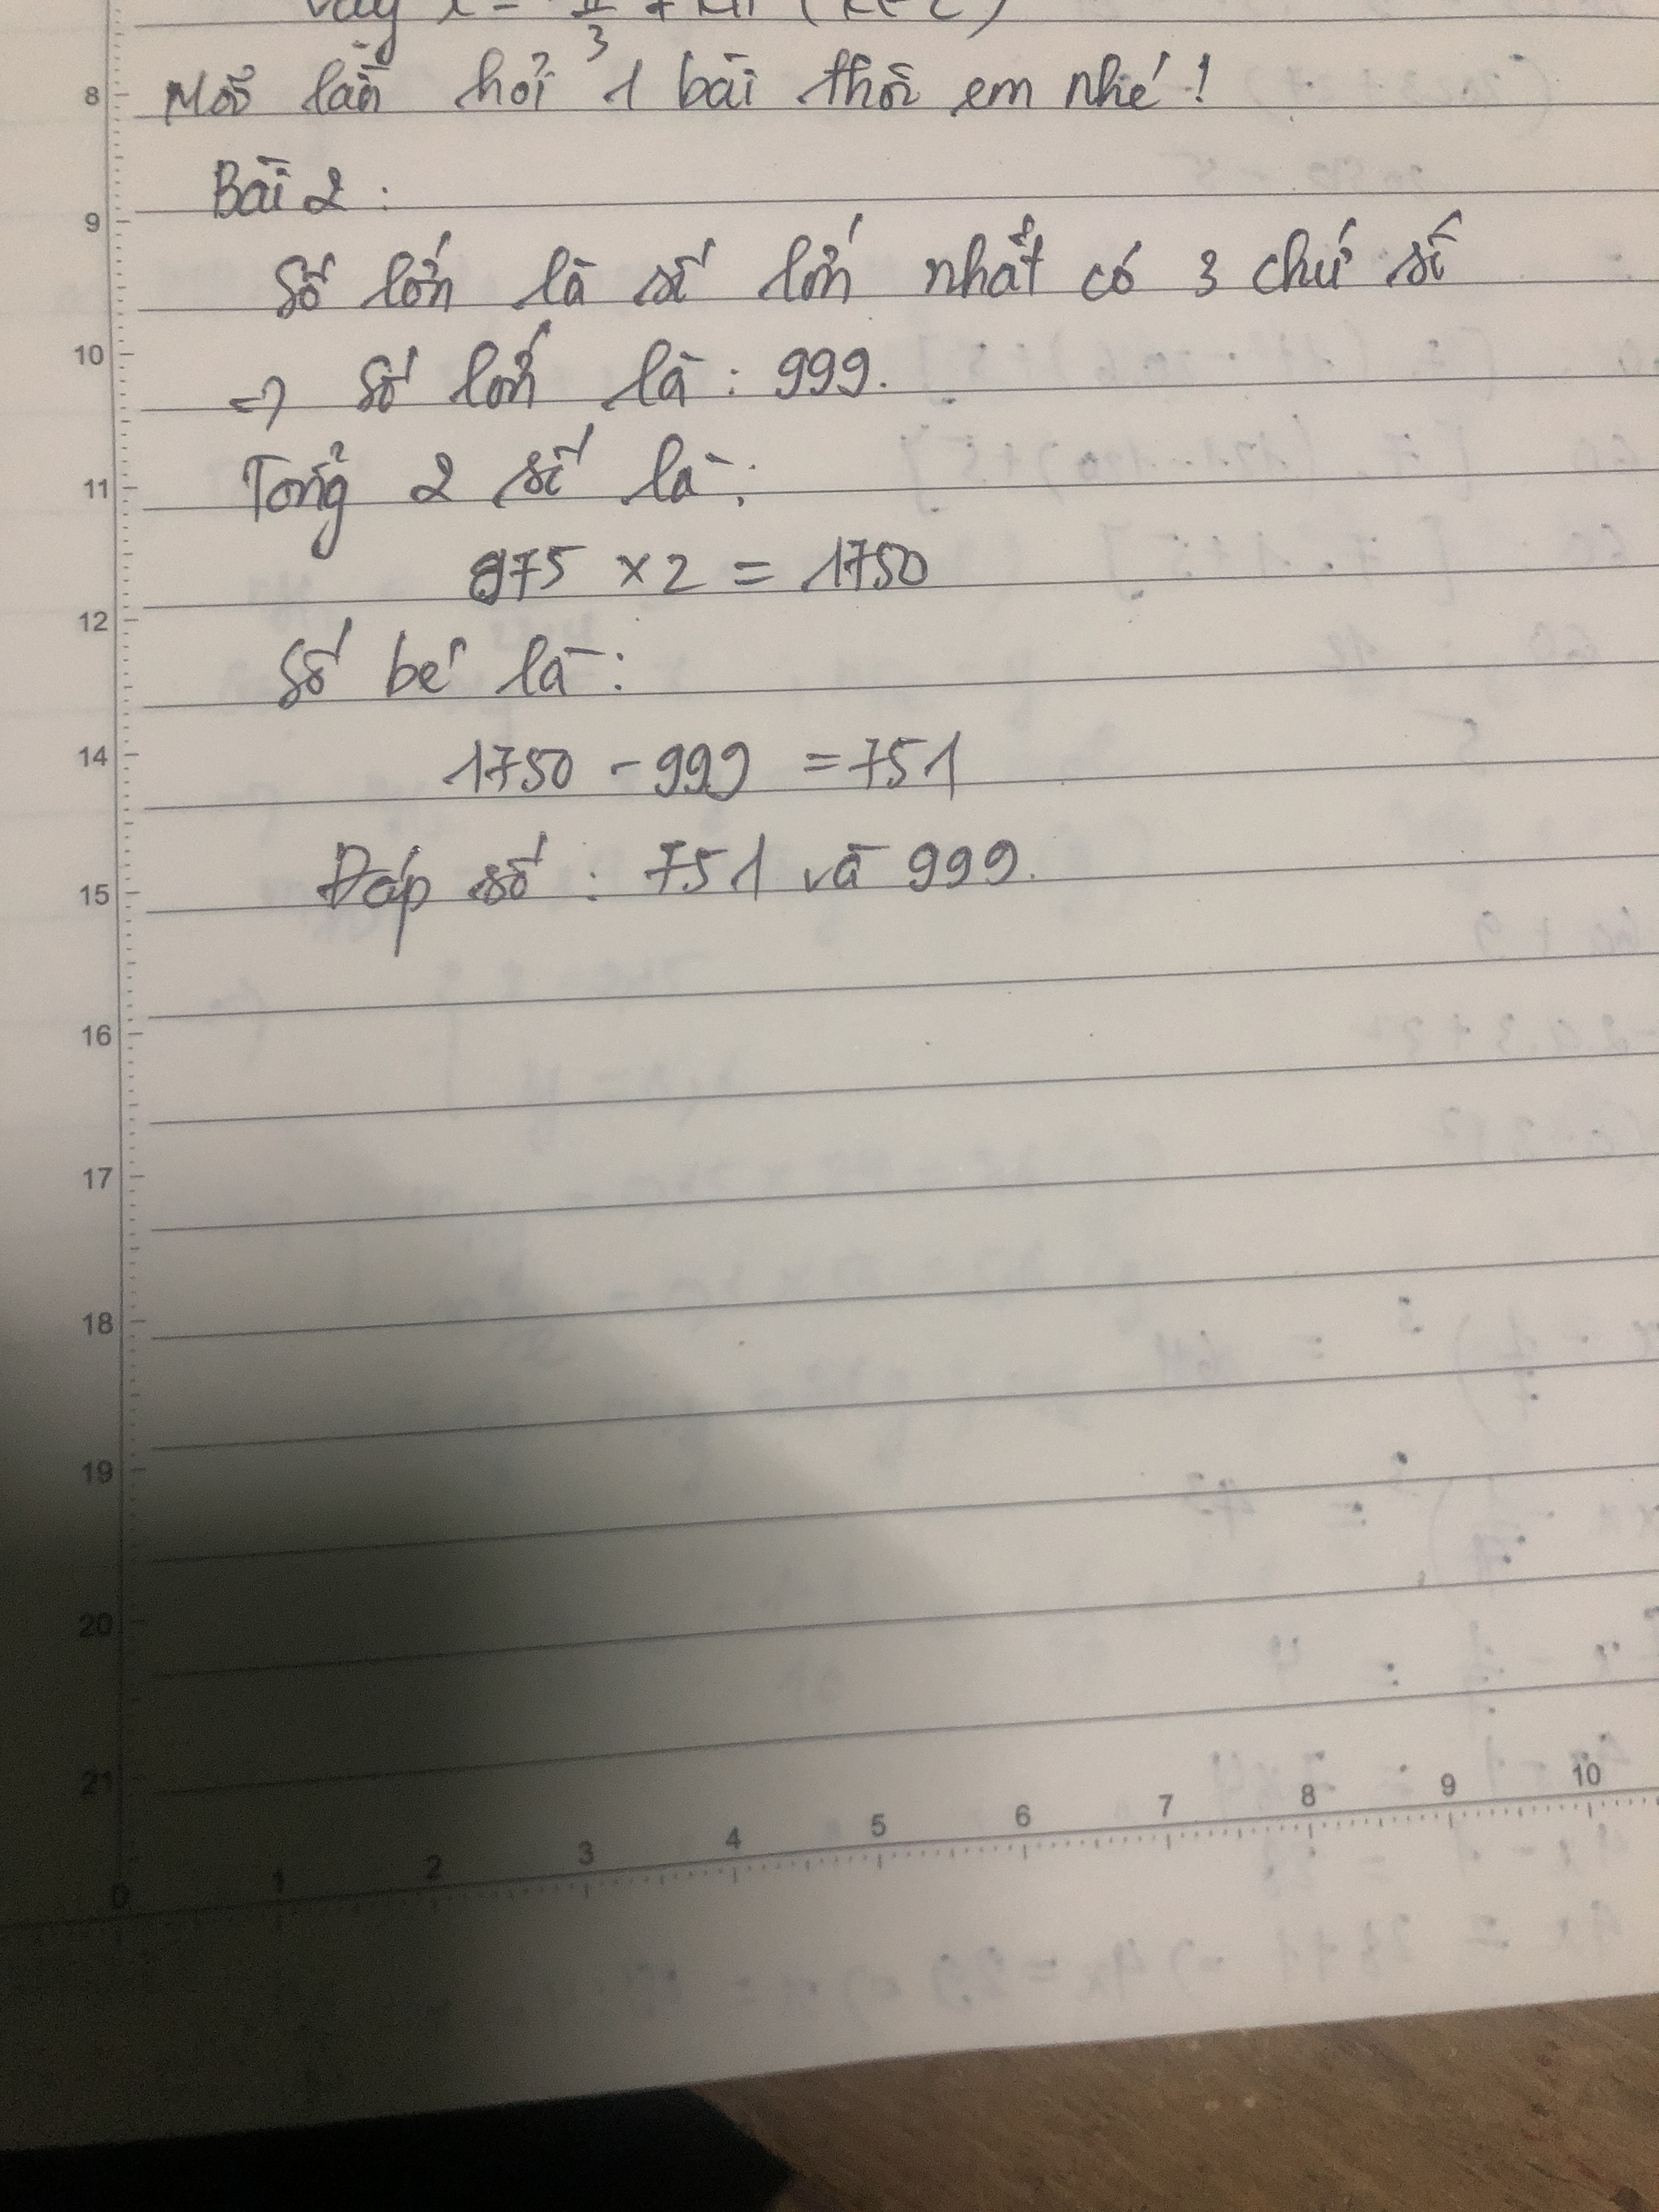 Vậy x = π/3 + kπ (k ∈ Z)
Mỗi lần hỏi 1 bài thôi em nhé!
8
Bài 2:
9
Số lớn là số lớn nhất có 3 chữ số
10
=> Số lớn là: 999.
11
Tổng 2 số là:
875 × 2 = 1750
12
Số bé là:
14
1750 - 999 = 751
15
Đáp số: 751 và 999.
16
17
18
19
20
21
0 1 2 3 4 5 6 7 8 9 10